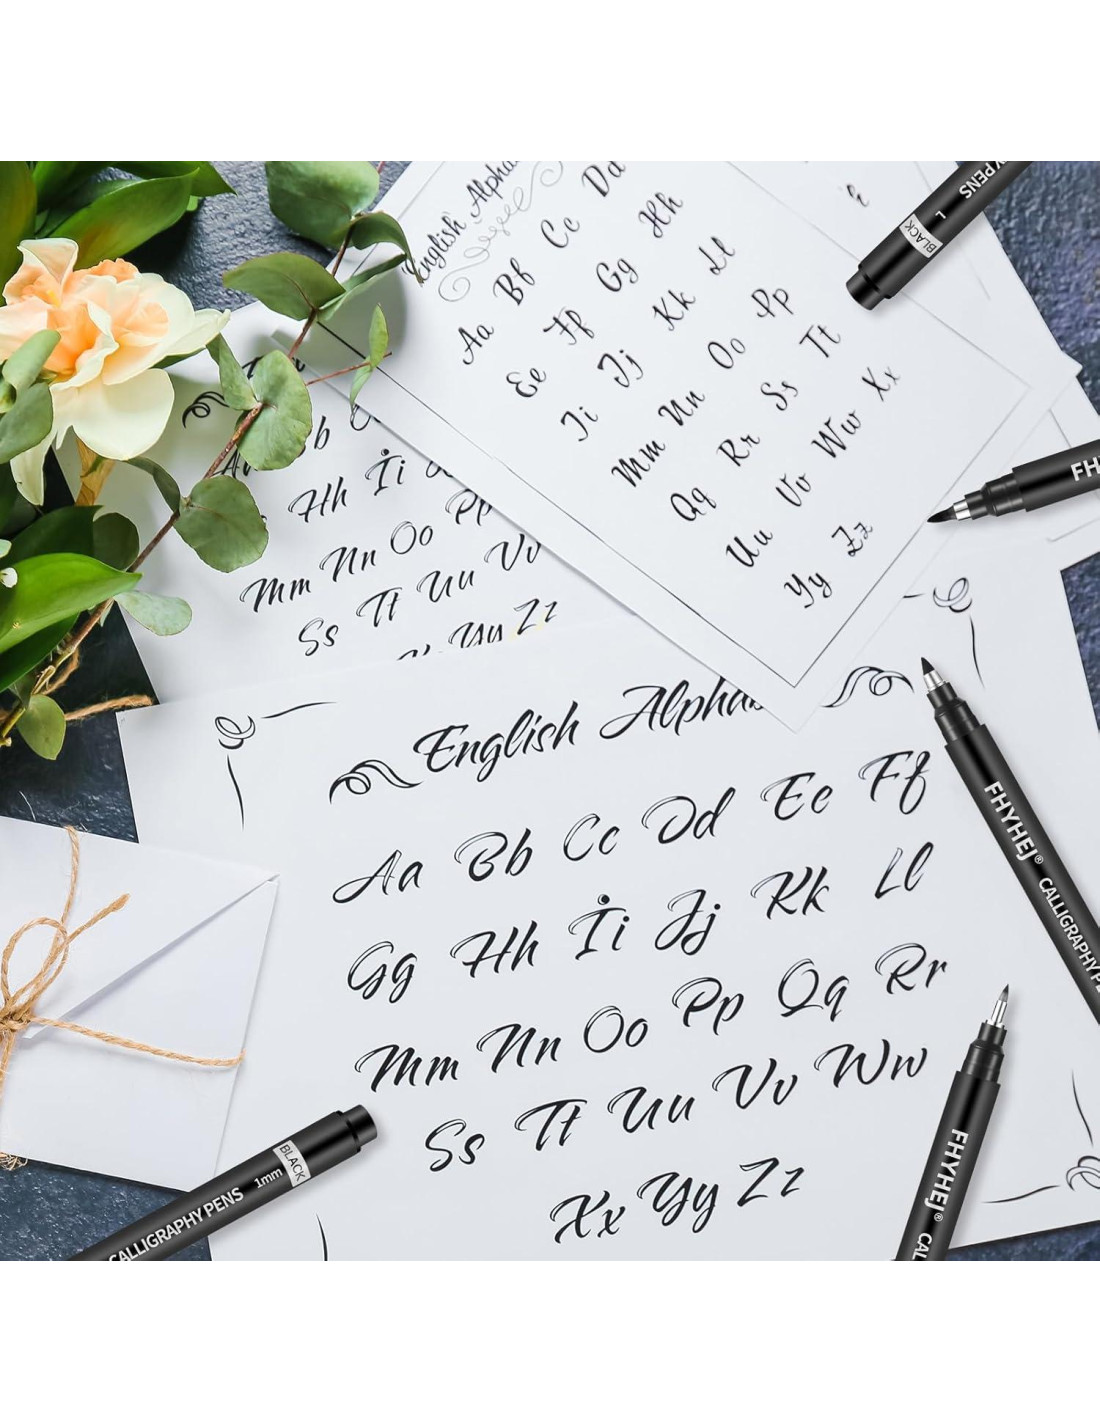 English Alpha
Aa Bf Cc Dd
Ee Ff Gg Hh
Ii Jj Kk Ll
Mm Nn Oo Pp
Qq Rr Ss Tt
Uu Vv Ww Xx
Yy Zz
PENS L BLACK
FH
b
Hh Ii
Mm Nn Oo Pp
Ss Tt Uu Vv
Yy Zz
English Alphab
Aa Bb Cc Dd Ee Ff
Gg Hh Ii Jj Kk Ll
Mm Nn Oo Pp Qq Rr
Ss Tt Uu Vv Ww
Xx Yy Zz
FHYHEJ® CALLIGRAPHY P
FHYHEJ® CAL
CALLIGRAPHY PENS 1mm BLACK